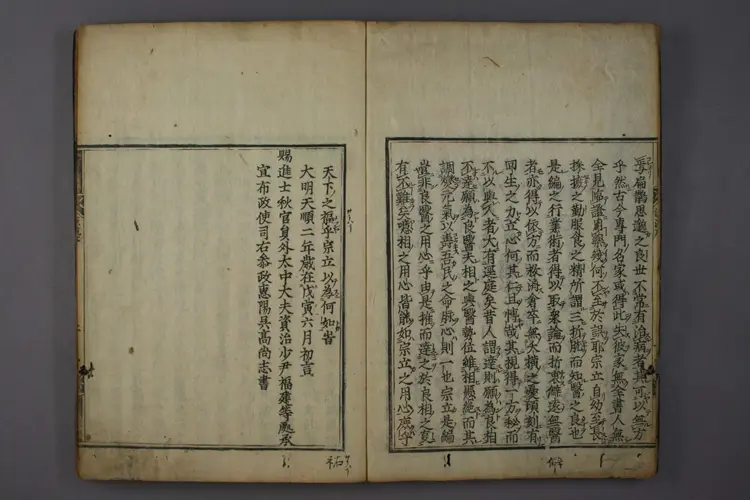 扁鵲思邈之良世不常有病者其可以無方
乎然古今專門名家或得此失彼家無全書人無
全見臨證幾何不至於誤耶宗立自幼至長
採摭之勤服食之精所謂三折肱而知醫之良也
是編之行業術者得以取衆論而折衷遠無醫
者亦得以依方而救濟倉卒無夭橫之憂頃刻有
回生之力立心何其仁且博哉其視得一方秘而
不以與人者大有逕庭矣昔人謂達則願為良相
不達願為良醫夫相之與醫勢位雖相懸絕而其
調燮元氣以壽吾民之命脉心則一也宗立是編
豈非良醫之用心乎由是推而達之於良相之
有不難矣噫相之用心皆能如宗立之用心庶乎
天下之福乎宗立以為何如
大明天順二年歲在戊寅六月初吉
賜進士秋官員外太中大夫資治少尹福建等處承
宣布政使司右叅政惠陽吳高尚志書